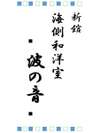 新館
海側和洋室
・波の音・